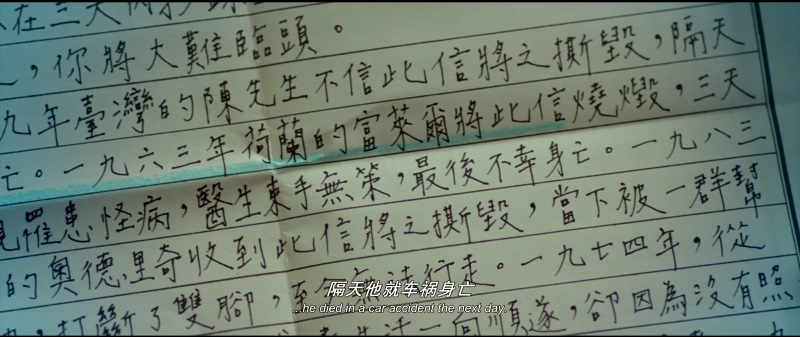 在三天內
，你將大難臨頭。
九年臺灣的陳先生不信此信將之撕毀，隔天
亡。一九六三年荷蘭的富萊爾將此信燒燬，三天
罹患怪病，醫生束手無策，最後不幸身亡。一九八三
的奧德里奇收到此信將之撕毀，當下被一群幫
打斷了雙腳，至今無法行走。一九七四年，從
生活一向順遂，卻因為沒有照
隔天他就车祸身亡
...he died in a car accident the next day.